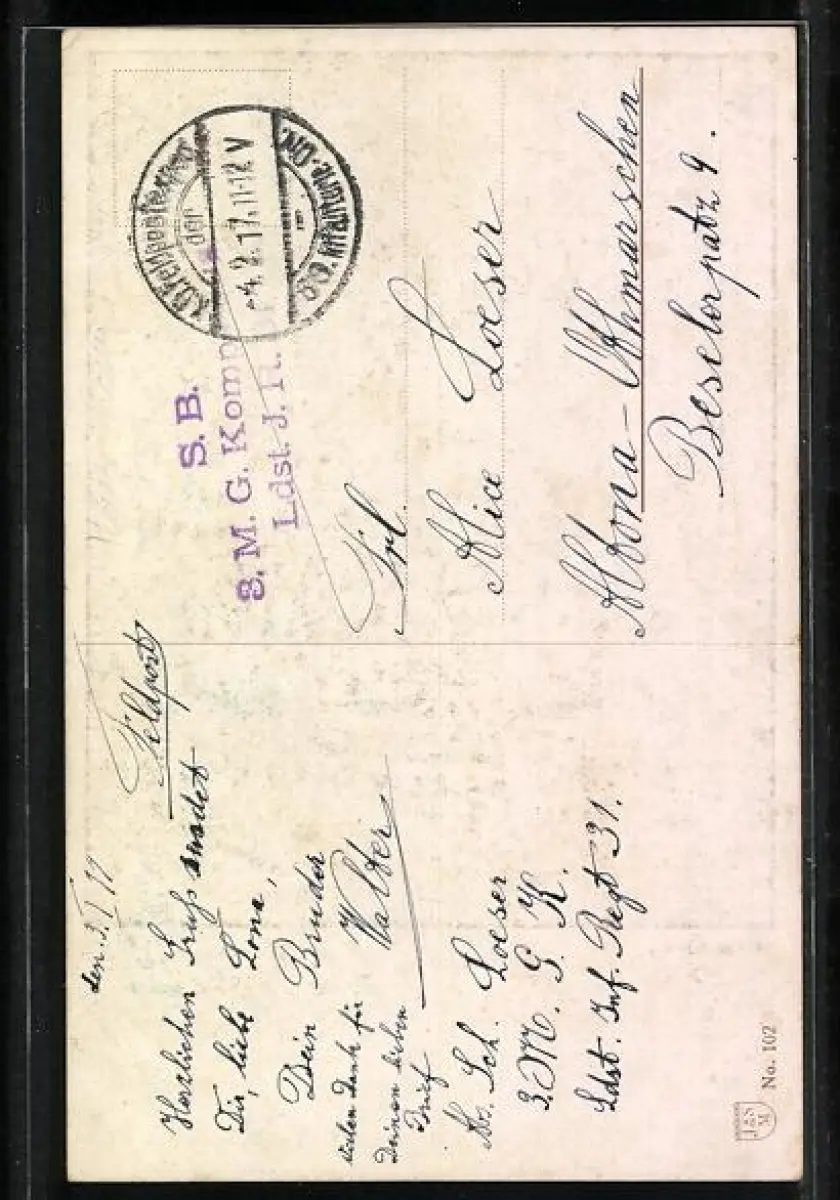 Feldpost
den 3. II 17
Herzlichen Gruß sendet
Dir, liebe Lona,
Dein Bruder
Walter
vielen Dank für
Deinen lieben
Brief
Abs. Sch. Loeser
3. M. G. K.
Ldst. Inf. Regt 31.
S. B.
3. M. G. Komp
Ldst. J. R.
der
-4.2.17.11-12 V
Frl.
Alice Loeser
Altona-Othmarschen
Beselerplatz 9.
J&S
M
No. 102